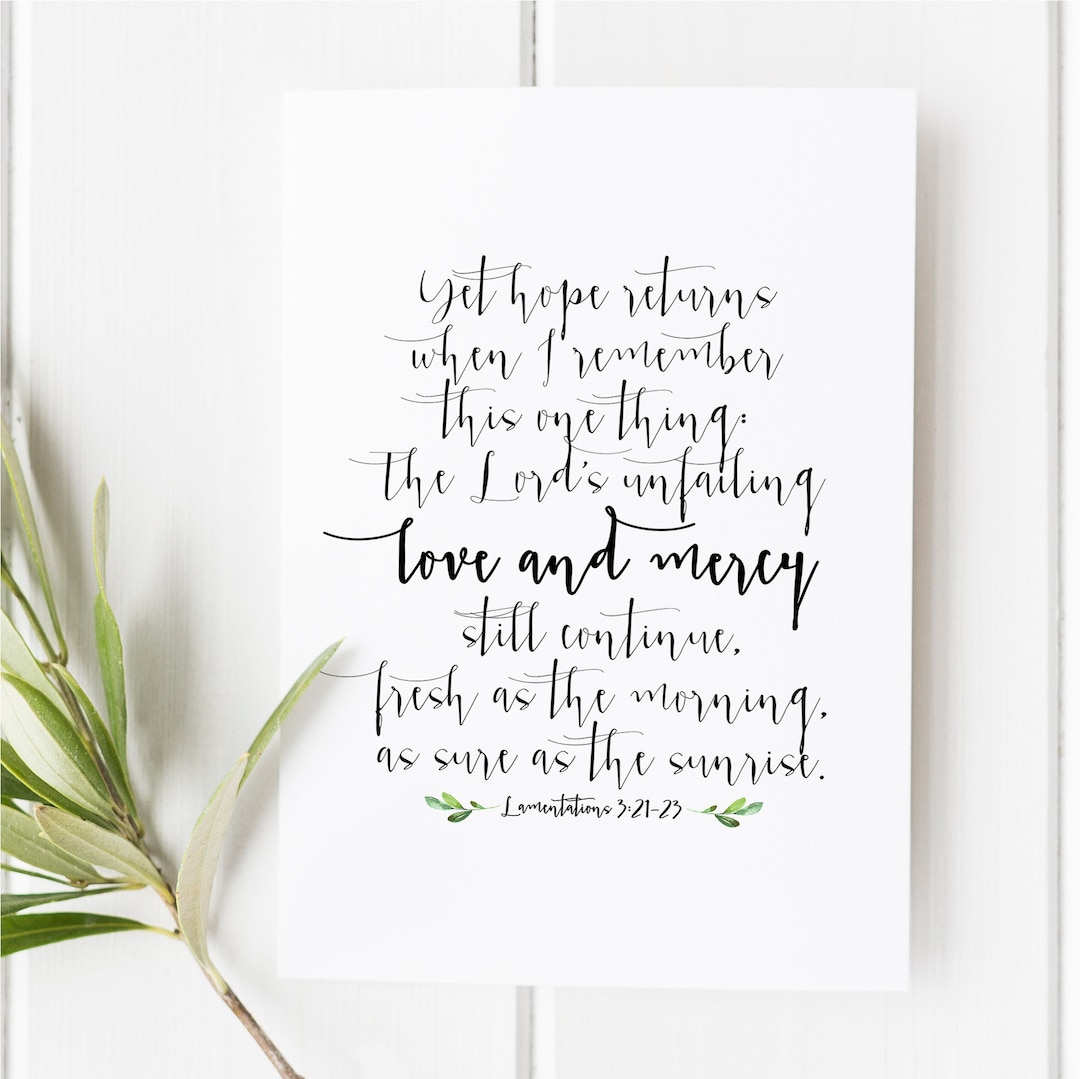 Yet hope returns
when I remember
this one thing:
The Lord's unfailing
love and mercy
still continue,
fresh as the morning,
as sure as the sunrise.
Lamentations 3:21-23